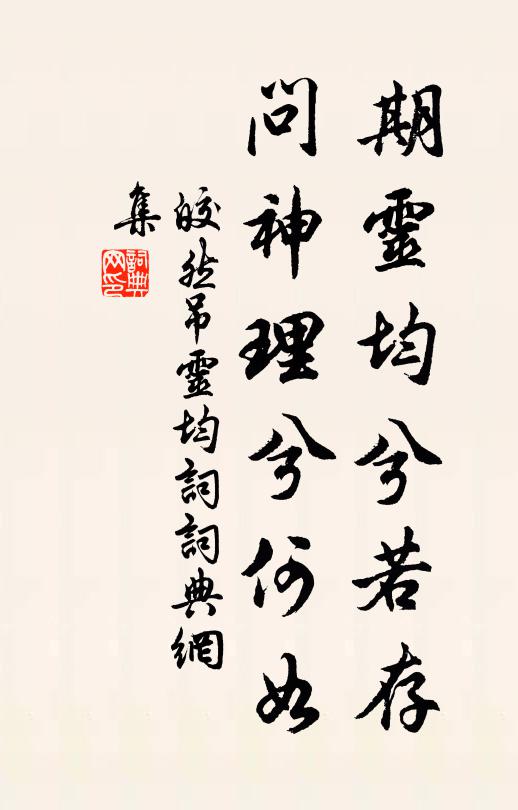 期靈均兮若存
問神理兮何如
皎然吊靈均詞詞典網
集
詞典网印